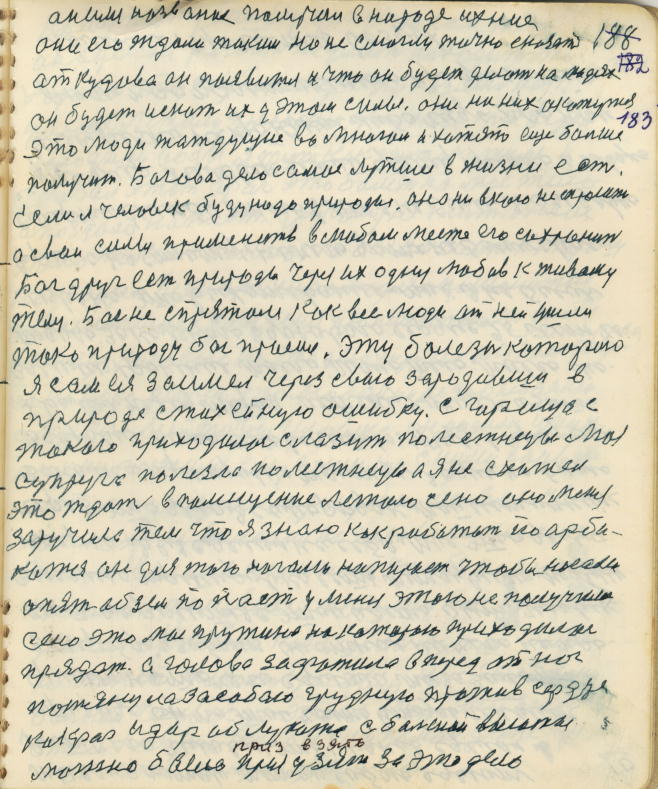 они название получили в народе ихние
они его ждали таким но не смогли точно сказать 188
аткудова он появится и что он будет делат на людях 182
он будет искат их у этом силы. они на них окажутся 183
Это люди жаждующие во многом и хотят еще больше
получит. Богова дело самое лутшее в жизни ест.
Если я человек буду надо природа. она ни в кого не
а свои силы применить в слабом месте его сохранит
Бог друг ест природы через их одну любов к живому
телу. Бог не спрятался как все люди от ней ушли
тоже природу бог просил. Эту болезн которою
я сам ея заимел через свою зародивши в
природе стихейную ошибку. С горища с
такого приходилос слазит по лестнецы Моя
супруга полезла по лестнецы а я не схотел
это ждат в помещение лежало сено оно меня
заручила тем что я знаю как работат по
кожа он для того ногами напирает чтобы
опят у меня этого не получилос
сено это мне пружина на которою приходилос
прядат. а голова вперед от ног
потянула за собою грудную против сердца
как раз удар с бальшой высоты
приз взять
можно было приз узят за это дело